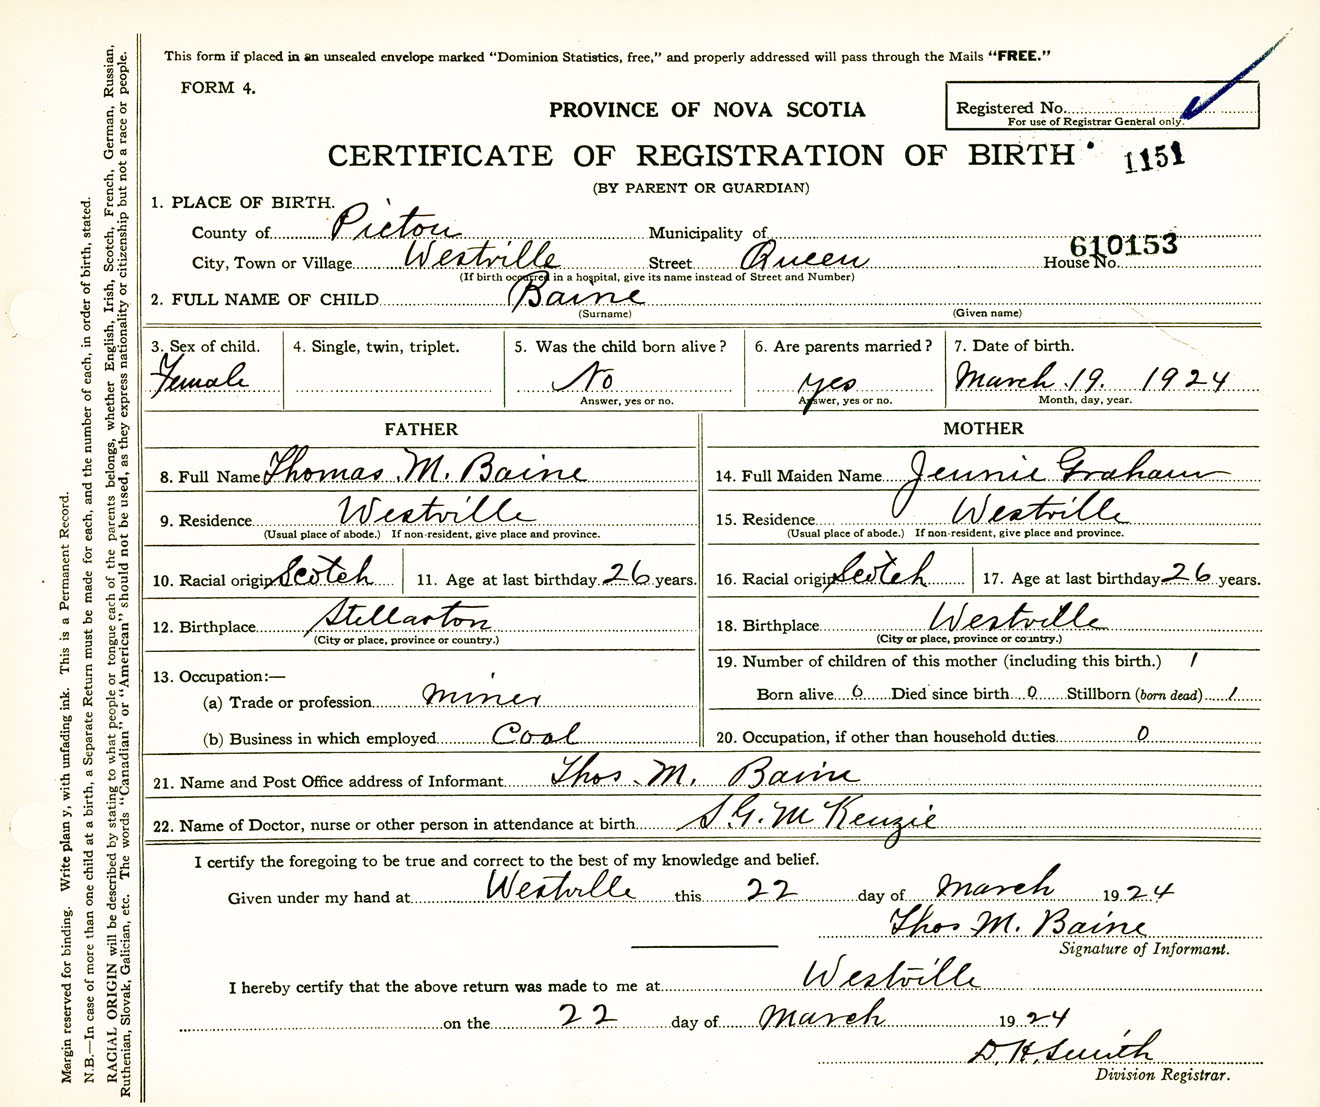 This form if placed in an unsealed envelope marked “Dominion Statistics, free,” and properly addressed will pass through the Mails “FREE.”
FORM 4.
PROVINCE OF NOVA SCOTIA
Registered No.
For use of Registrar General only.
CERTIFICATE OF REGISTRATION OF BIRTH
1151
(BY PARENT OR GUARDIAN)
1. PLACE OF BIRTH.
County of Pictou Municipality of
610153
City, Town or Village Westville Street Queen House No.
(If birth occurred in a hospital, give its name instead of Street and Number)
2. FULL NAME OF CHILD Baine
(Surname) (Given name)
3. Sex of child. 4. Single, twin, triplet. 5. Was the child born alive? 6. Are parents married? 7. Date of birth.
Female No yes March 19. 1924
Answer, yes or no. Answer, yes or no. Month, day, year.
FATHER MOTHER
8. Full Name Thomas M. Baine 14. Full Maiden Name Jennie Graham
9. Residence Westville 15. Residence Westville
(Usual place of abode.) If non-resident, give place and province. (Usual place of abode.) If non-resident, give place and province.
10. Racial origin Scotch 11. Age at last birthday 26 years. 16. Racial origin Scotch 17. Age at last birthday 26 years.
12. Birthplace Stellarton 18. Birthplace Westville
(City or place, province or country.) (City or place, province or country.)
13. Occupation:— 19. Number of children of this mother (including this birth.) 1
(a) Trade or profession miner Born alive 0 Died since birth 0 Stillborn (born dead) 1
(b) Business in which employed Coal 20. Occupation, if other than household duties 0
21. Name and Post Office address of Informant Thos. M. Baine
22. Name of Doctor, nurse or other person in attendance at birth S. G. McKenzie
I certify the foregoing to be true and correct to the best of my knowledge and belief.
Given under my hand at Westville this 22 day of March 1924
Thos. M. Baine
Signature of Informant.
I hereby certify that the above return was made to me at Westville
on the 22 day of March 1924
D. H. Smith
Division Registrar.
Margin reserved for binding. Write plainly, with unfading ink. This is a Permanent Record.
N.B.—In case of more than one child at a birth, a Separate Return must be made for each, and the number of each, in order of birth, stated.
RACIAL ORIGIN will be described by stating to what people or tongue each of the parents belongs, whether English, Irish, Scotch, French, German, Russian,
Ruthenian, Slovak, Galician, etc. The words “Canadian” or “American” should not be used, as they express nationality or citizenship but not a race or people.